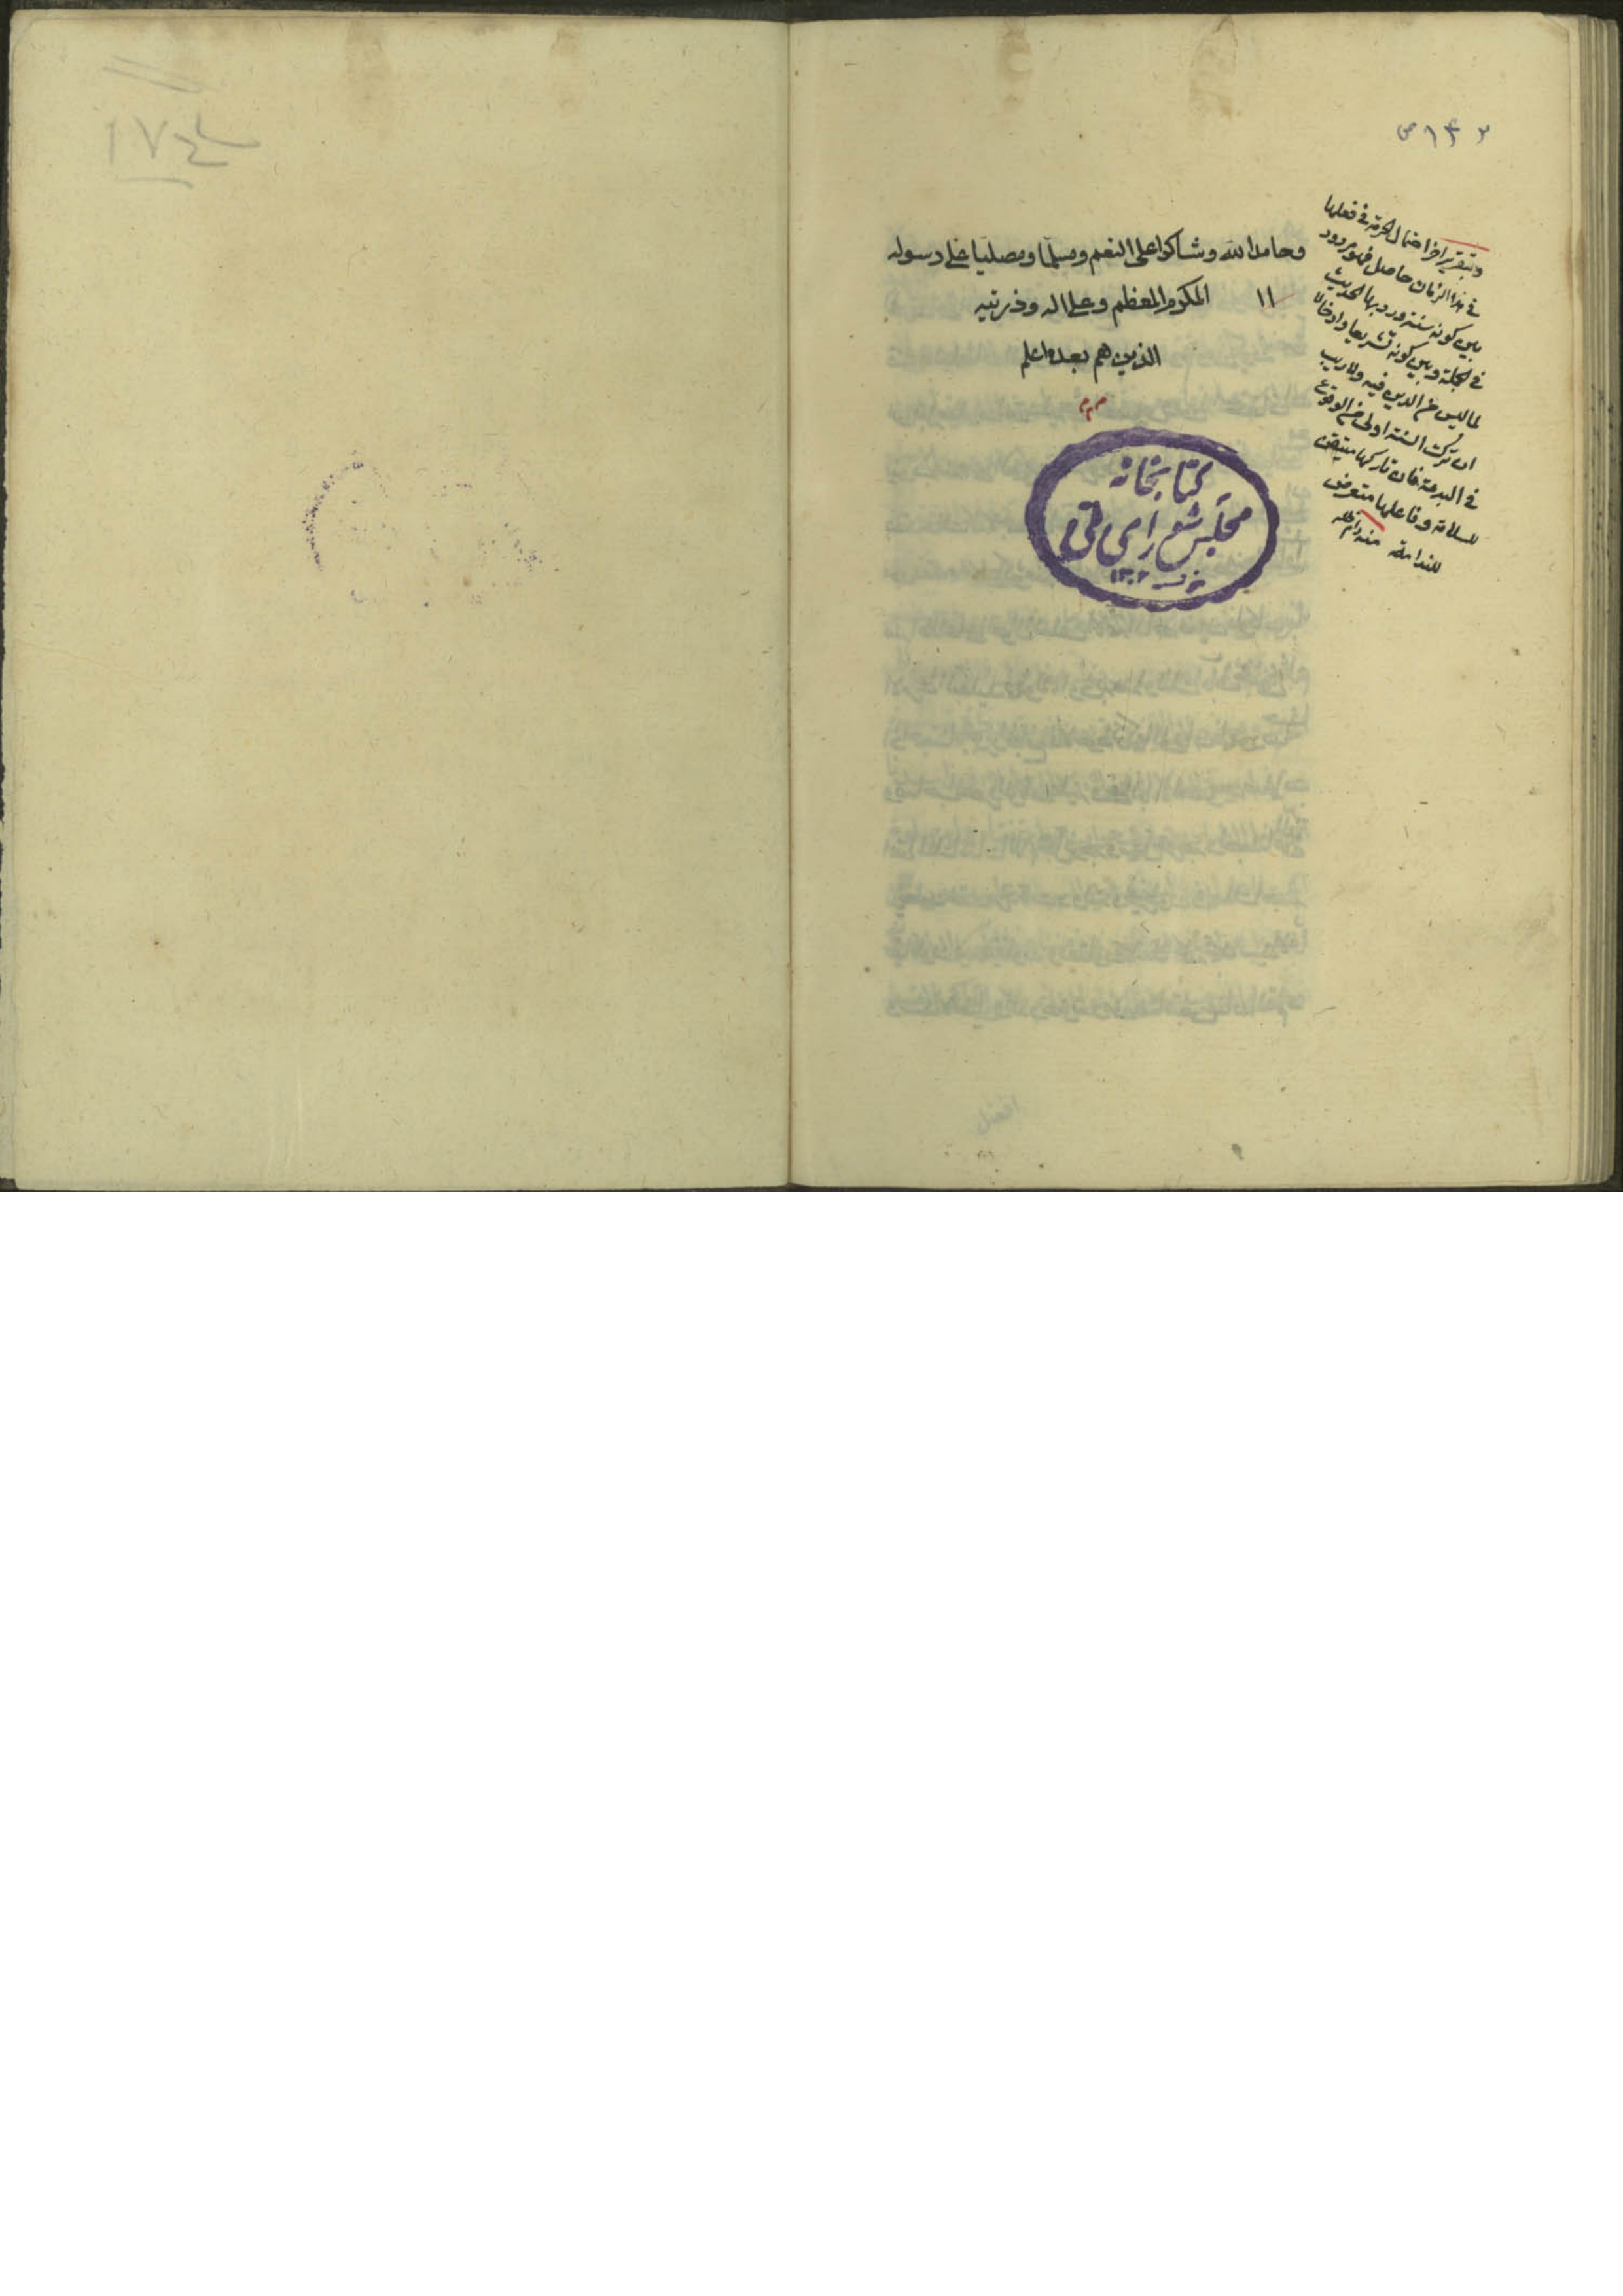 وحامدا لله وشاكرا على النعم ومسلما ومصليا على رسوله
١١ المكرم المعظم وعلى اله وذريته
الذين هم بعده اعلم
وبتقرير اخر احتمال الحرمة في فعلها
في هذا الزمان حاصل فهو مردود
بين كونه سنة ورد بها الحديث
في الجملة وبين كونه تشريعا وادخالا
لما ليس من الدين فيه ولا ريب
ان ترك السنة اولى من الوقوع
في البدعة فان تاركها متيقن
للسلامة وفاعلها متعرض
للندامة منه دام ظله
كتابخانه
مجلس شورای ملی
١٣٠٢